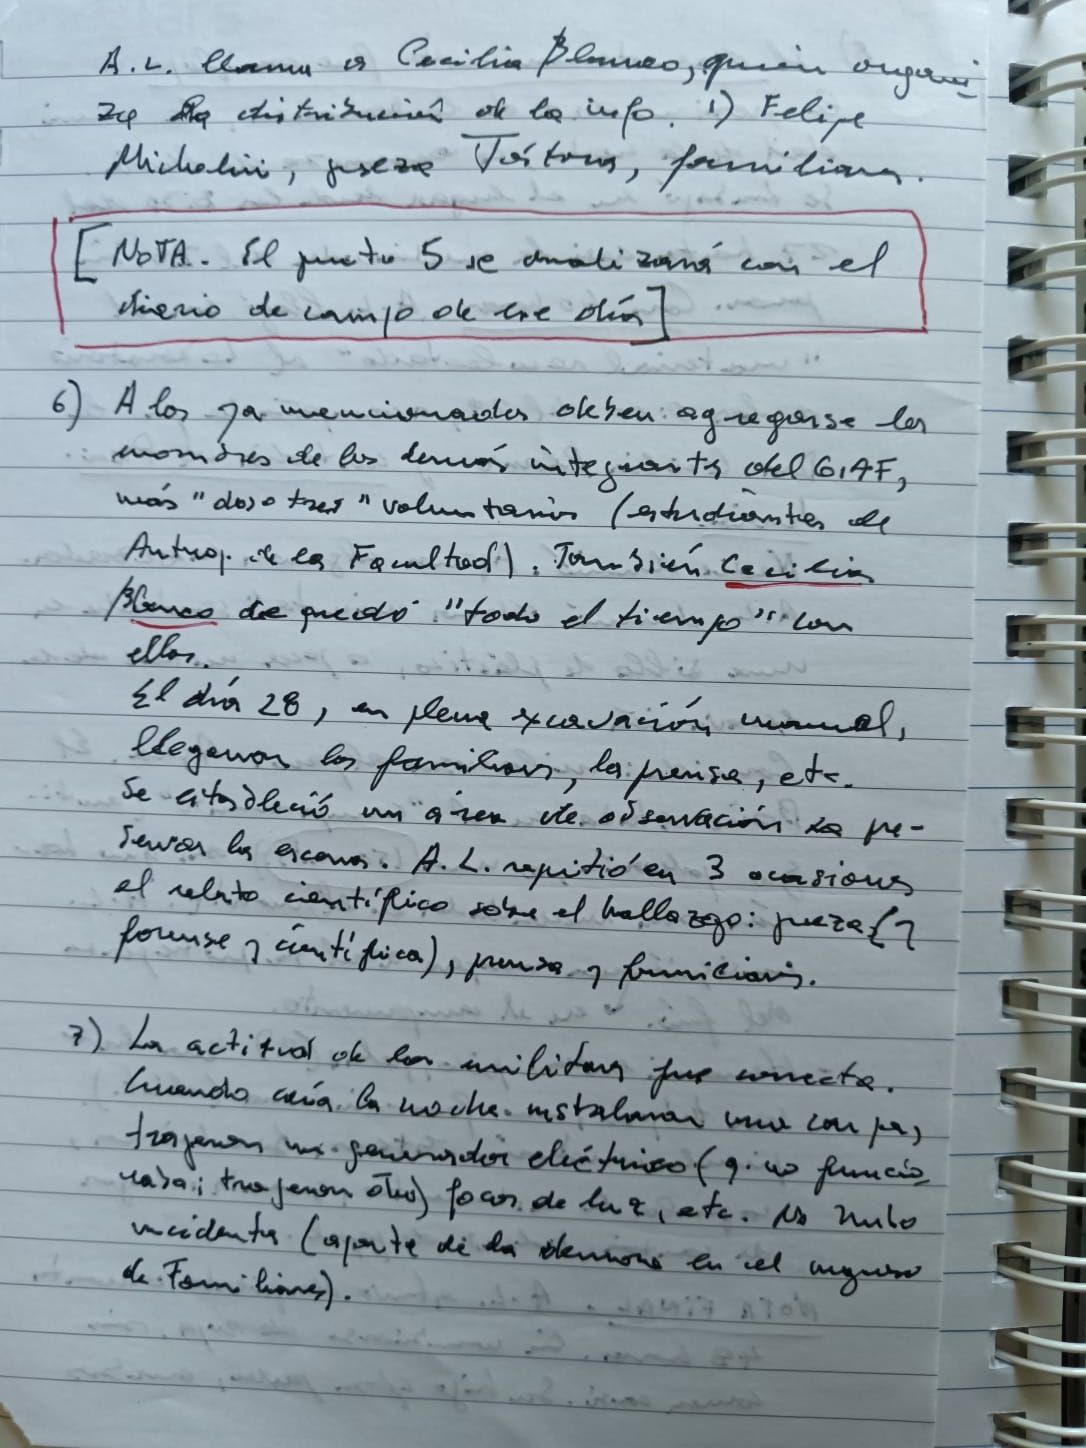 A.L. llama a Cecilia Blanco, quien organi
za la distribución de la info. 1) Felipe
Michelini, jueza Tórtora, familiares.
[NOTA. El punto 5 se analizará con el
diario de campo de ese día]
6) A los ya mencionados deben agregarse los
nombres de los demás integrants del GIAF,
más "dos o tres" voluntarios (estudiantes de
Antrop. de la Facultad). También Cecilia
Blanco se quedó "todo el tiempo" con
ellos.
El día 28, en plena excavación manual,
llegaron los familiares, la prensa, etc.
Se estableció un área de observación pre-
servar la escena. A.L. repitió en 3 ocasiones
el relato científico sobre el hallazgo: jueza (
forense y científica), prensa y familiares.
7) La actitud de los militares fue correcta.
Cuando caía la noche instalaron una carpa,
trajeron un generador eléctrico (q. no funcio
naba; trajeron otro) focos de luz, etc. No hubo
incidentes (aparte de la demora en el ingreso
de Familiares).